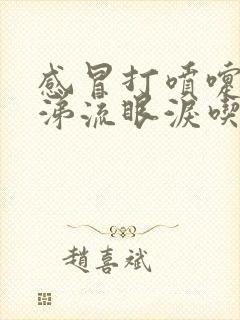 感冒打噴嚏
涕流眼淚喫
趙喜斌